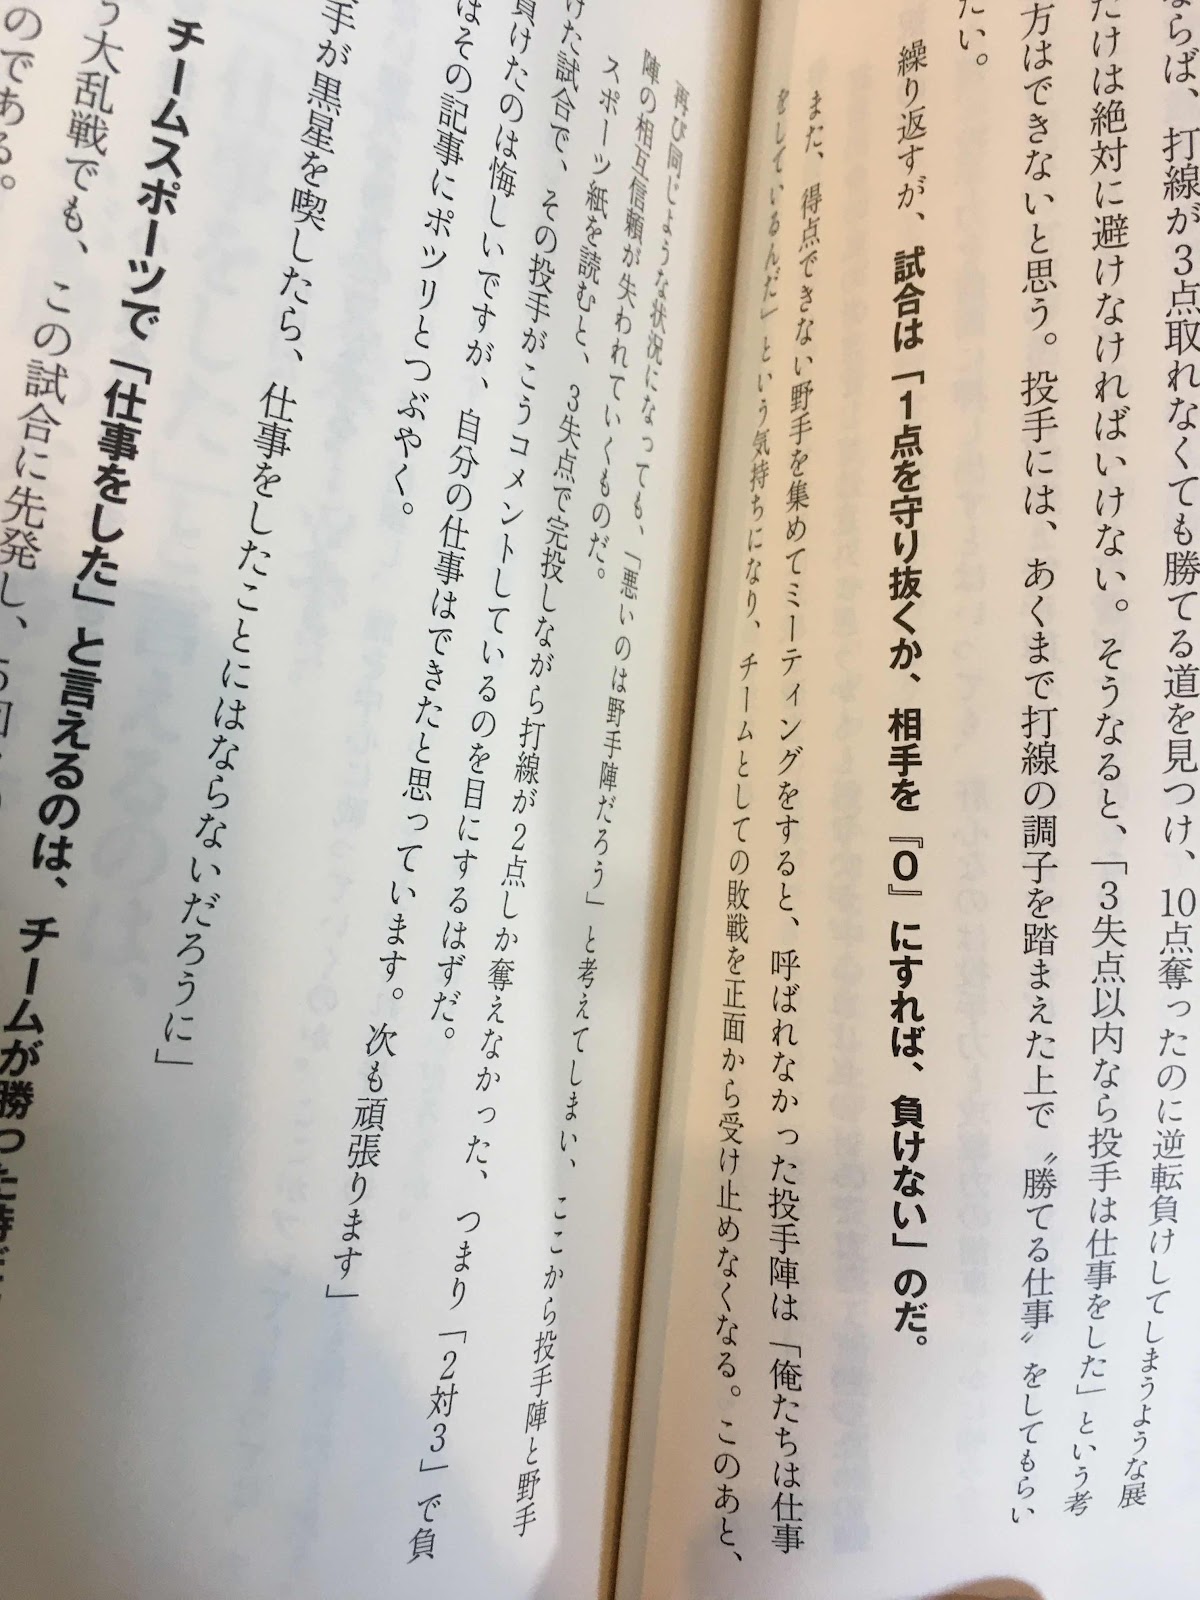 ならば、打線が3点取れなくても勝てる道を見つけ、10点奪ったのに逆転負けしてしまうような展
だけは絶対に避けなければいけない。そうなると、「3失点以内なら投手は仕事をした」という考
方はできないと思う。投手には、あくまで打線の調子を踏まえた上で〝勝てる仕事〟をしてもらい
たい。
繰り返すが、試合は「1点を守り抜くか、相手を『0』にすれば、負けない」のだ。
また、得点できない野手を集めてミーティングをすると、呼ばれなかった投手陣は「俺たちは仕事
をしているんだ」という気持ちになり、チームとしての敗戦を正面から受け止めなくなる。このあと、
再び同じような状況になっても、「悪いのは野手陣だろう」と考えてしまい、ここから投手陣と野手
陣の相互信頼が失われていくものだ。
スポーツ紙を読むと、3失点で完投しながら打線が2点しか奪えなかった、つまり「2対3」で負
けた試合で、その投手がこうコメントしているのを目にするはずだ。
負けたのは悔しいですが、自分の仕事はできたと思っています。次も頑張ります」
はその記事にポツリとつぶやく。
手が黒星を喫したら、仕事をしたことにはならないだろうに」
チームスポーツで「仕事をした」と言えるのは、チームが勝った時だ
う大乱戦でも、この試合に先発し、5回
のである。